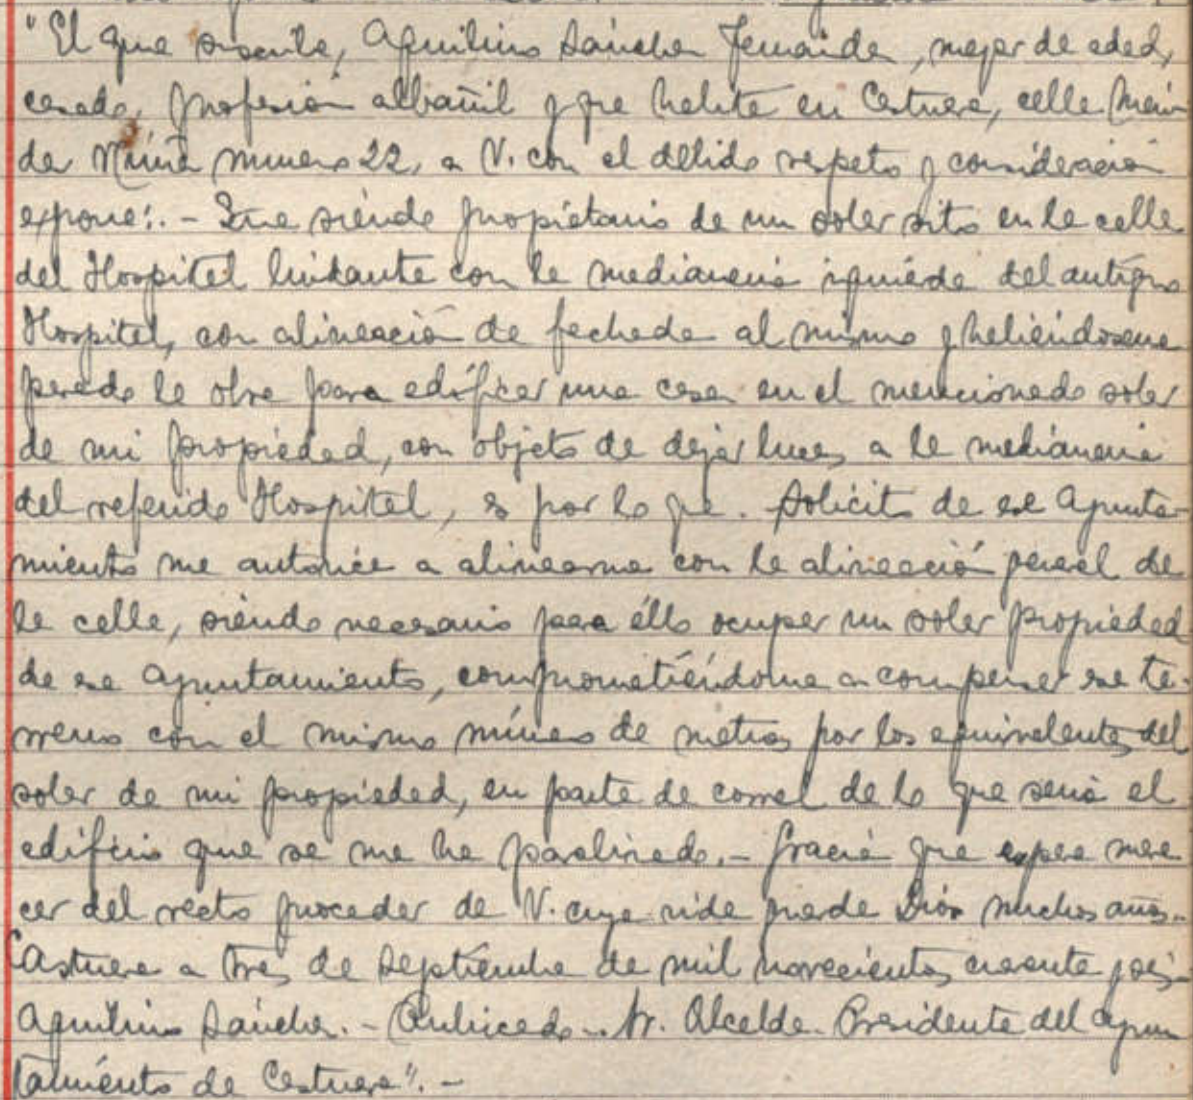 "El que suscribe, Aquilino Sánchez Fernández, mayor de edad,
casado, profesión albañil y que habita en Castuera, calle
de Mina número 22, a V. con el debido respeto y consideración
expone:.- Que siendo propietario de un solar sito en la calle
del Hospital lindante con la medianería izquierda del antiguo
Hospital, con alineación de fachada al mismo y habiéndoseme
parado la obra para edificar una casa en el mencionado solar
de mi propiedad, con objeto de dejar luces a la medianería
del referido Hospital, es por lo que. Solicito de ese Ayunta-
miento me autorice a alinearme con la alineación general de
la calle, siendo necesario para éllo ocupar un solar propiedad
de ese Ayuntamiento, comprometiéndome a compensar ese te-
rreno con el mismo número de metros por los equivalentes del
solar de mi propiedad, en parte de corral de lo que sería el
edificio que se me ha paralizado.- Gracia que espera mere
cer del recto proceder de V. cuya vida guarde Dios muchos años.-
Castuera a tres de Septiembre de mil novecientos cuarenta y seis.-
Aquilino Sánchez.- Rubricado.- Sr. Alcalde Presidente del Ayun
tamiento de Castuera".-